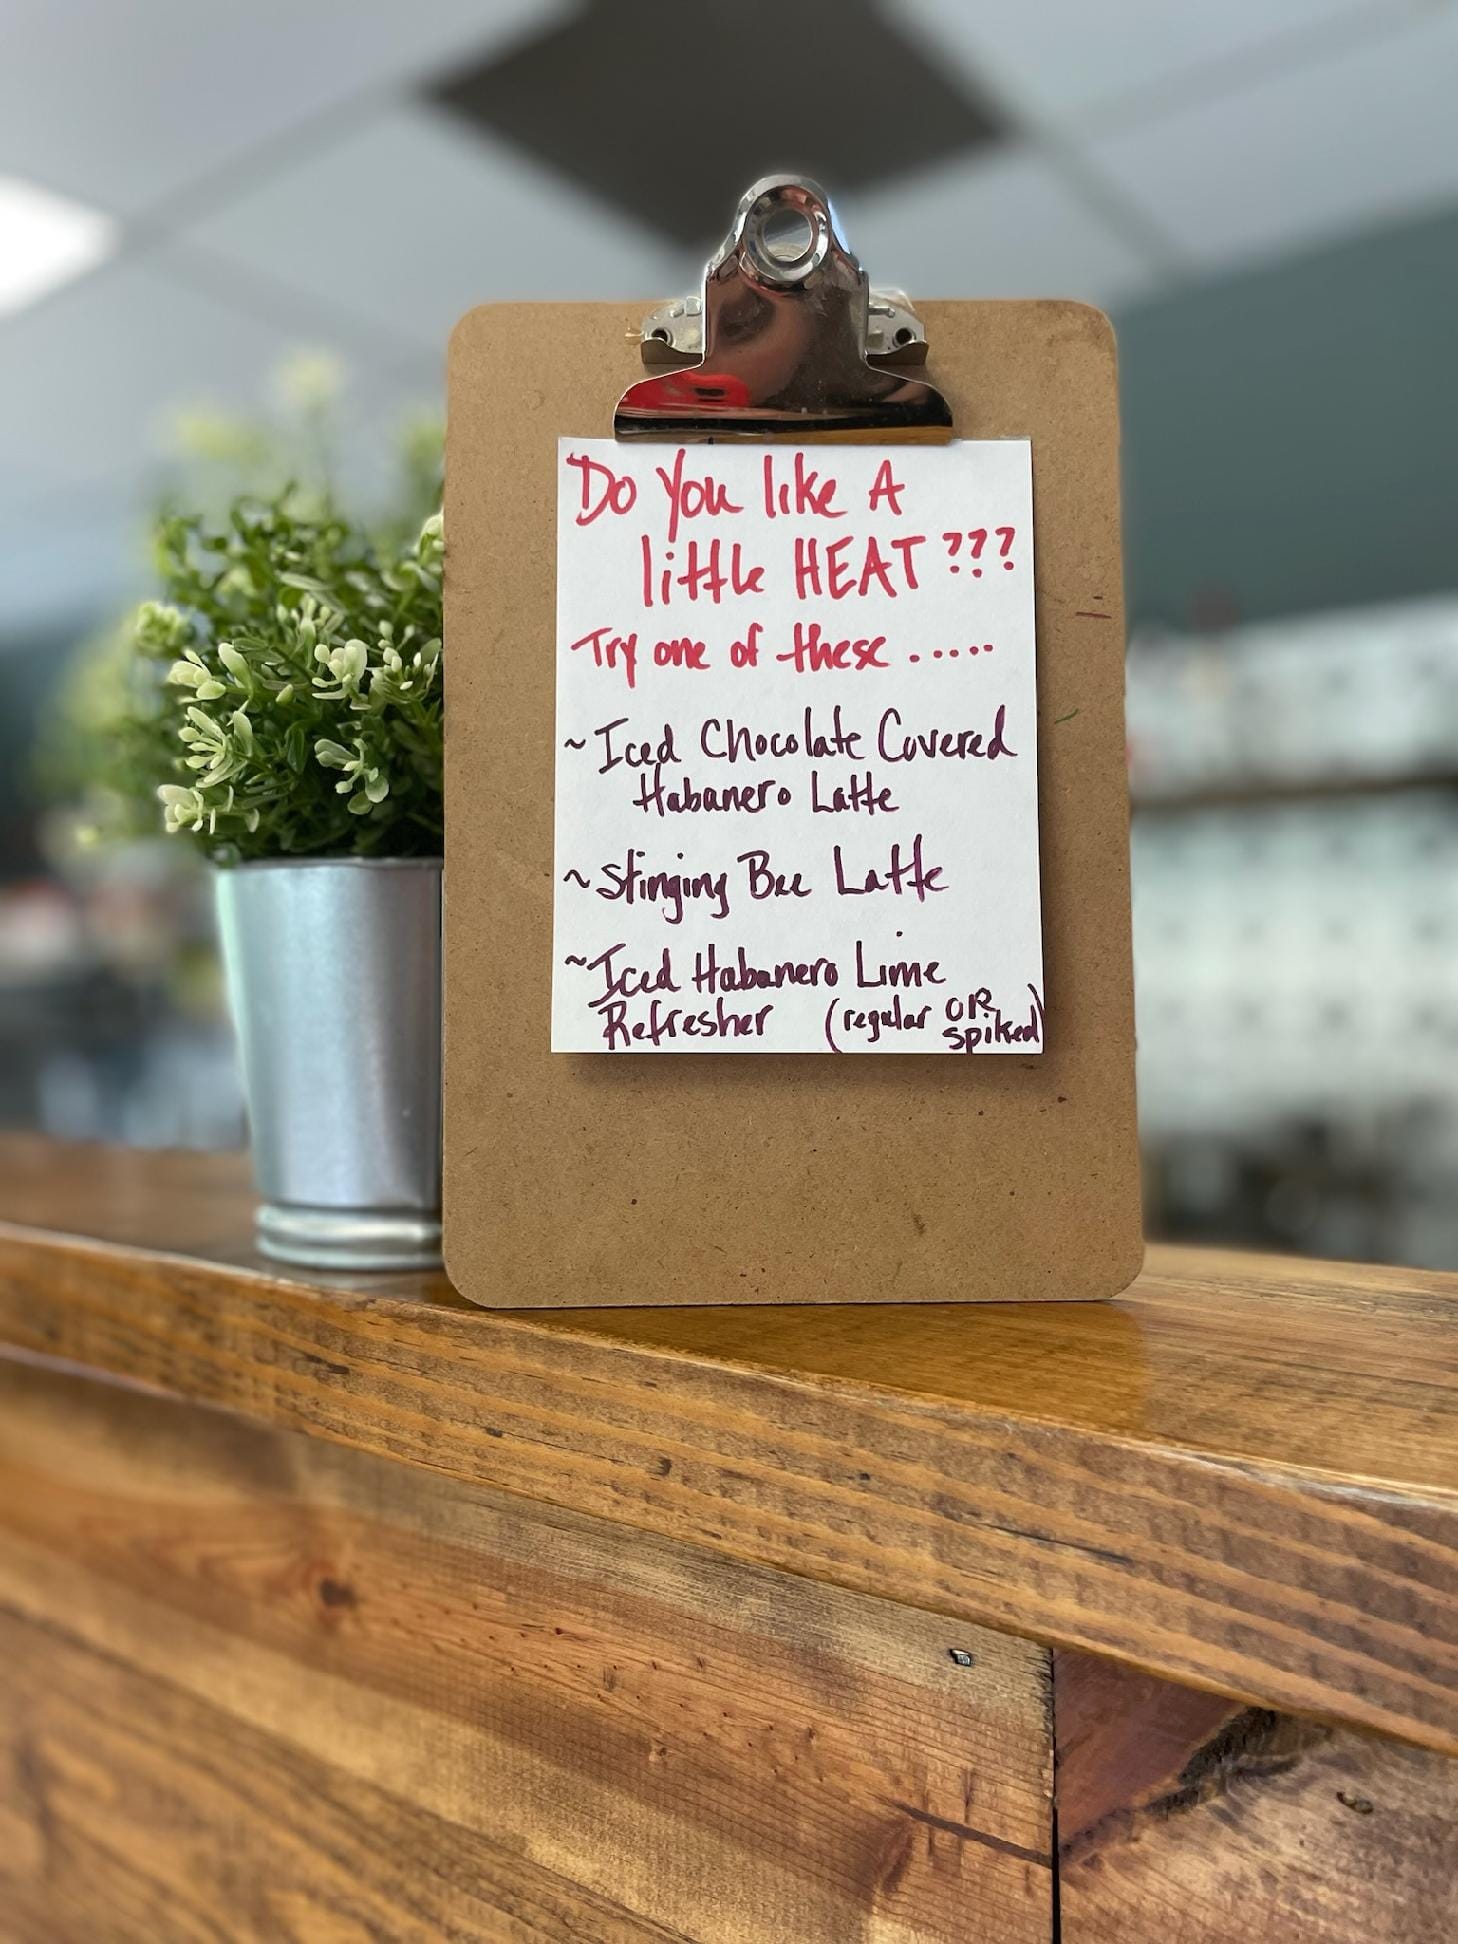 Do You like A
little HEAT???
Try one of these .....
~Iced Chocolate Covered
Habanero Latte
~Stinging Bee Latte
~Iced Habanero Lime
Refresher (regular OR
spiked)